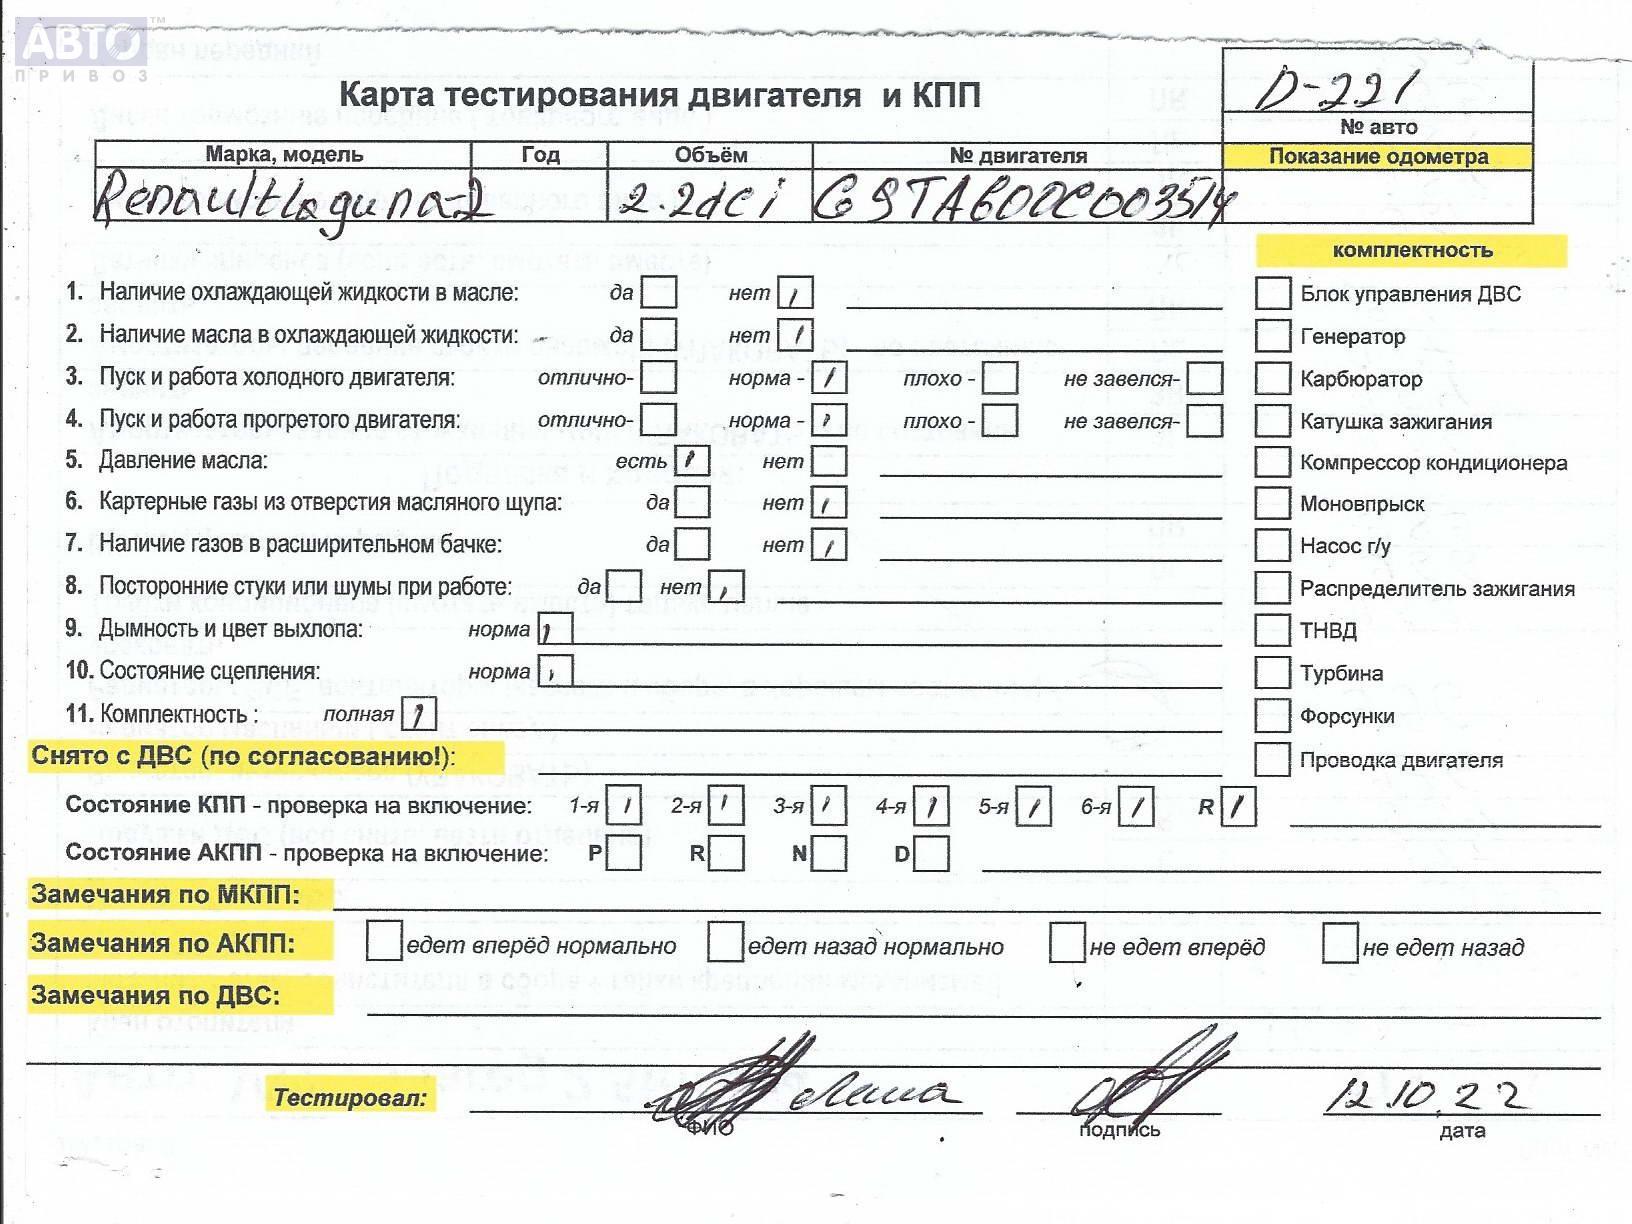 АВТО™
ПРИВОЗ
Карта тестирования двигателя и КПП
D-221
№ авто
Марка, модель Год Объём № двигателя Показание одометра
Renault Laguna-2 2.2dci G9TA600C003514
комплектность
1. Наличие охлаждающей жидкости в масле: да нет Блок управления ДВС
2. Наличие масла в охлаждающей жидкости: да нет Генератор
3. Пуск и работа холодного двигателя: отлично- норма - плохо - не завелся- Карбюратор
4. Пуск и работа прогретого двигателя: отлично- норма - плохо - не завелся- Катушка зажигания
5. Давление масла: есть нет Компрессор кондиционера
6. Картерные газы из отверстия масляного щупа: да нет Моновпрыск
7. Наличие газов в расширительном бачке: да нет Насос г/у
8. Посторонние стуки или шумы при работе: да нет Распределитель зажигания
9. Дымность и цвет выхлопа: норма ТНВД
10. Состояние сцепления: норма Турбина
11. Комплектность : полная Форсунки
Снято с ДВС (по согласованию!): Проводка двигателя
Состояние КПП - проверка на включение: 1-я 2-я 3-я 4-я 5-я 6-я R
Состояние АКПП - проверка на включение: P R N D
Замечания по МКПП:
Замечания по АКПП: едет вперёд нормально едет назад нормально не едет вперёд не едет назад
Замечания по ДВС:
Тестировал: 12.10.22
ФИО подпись дата